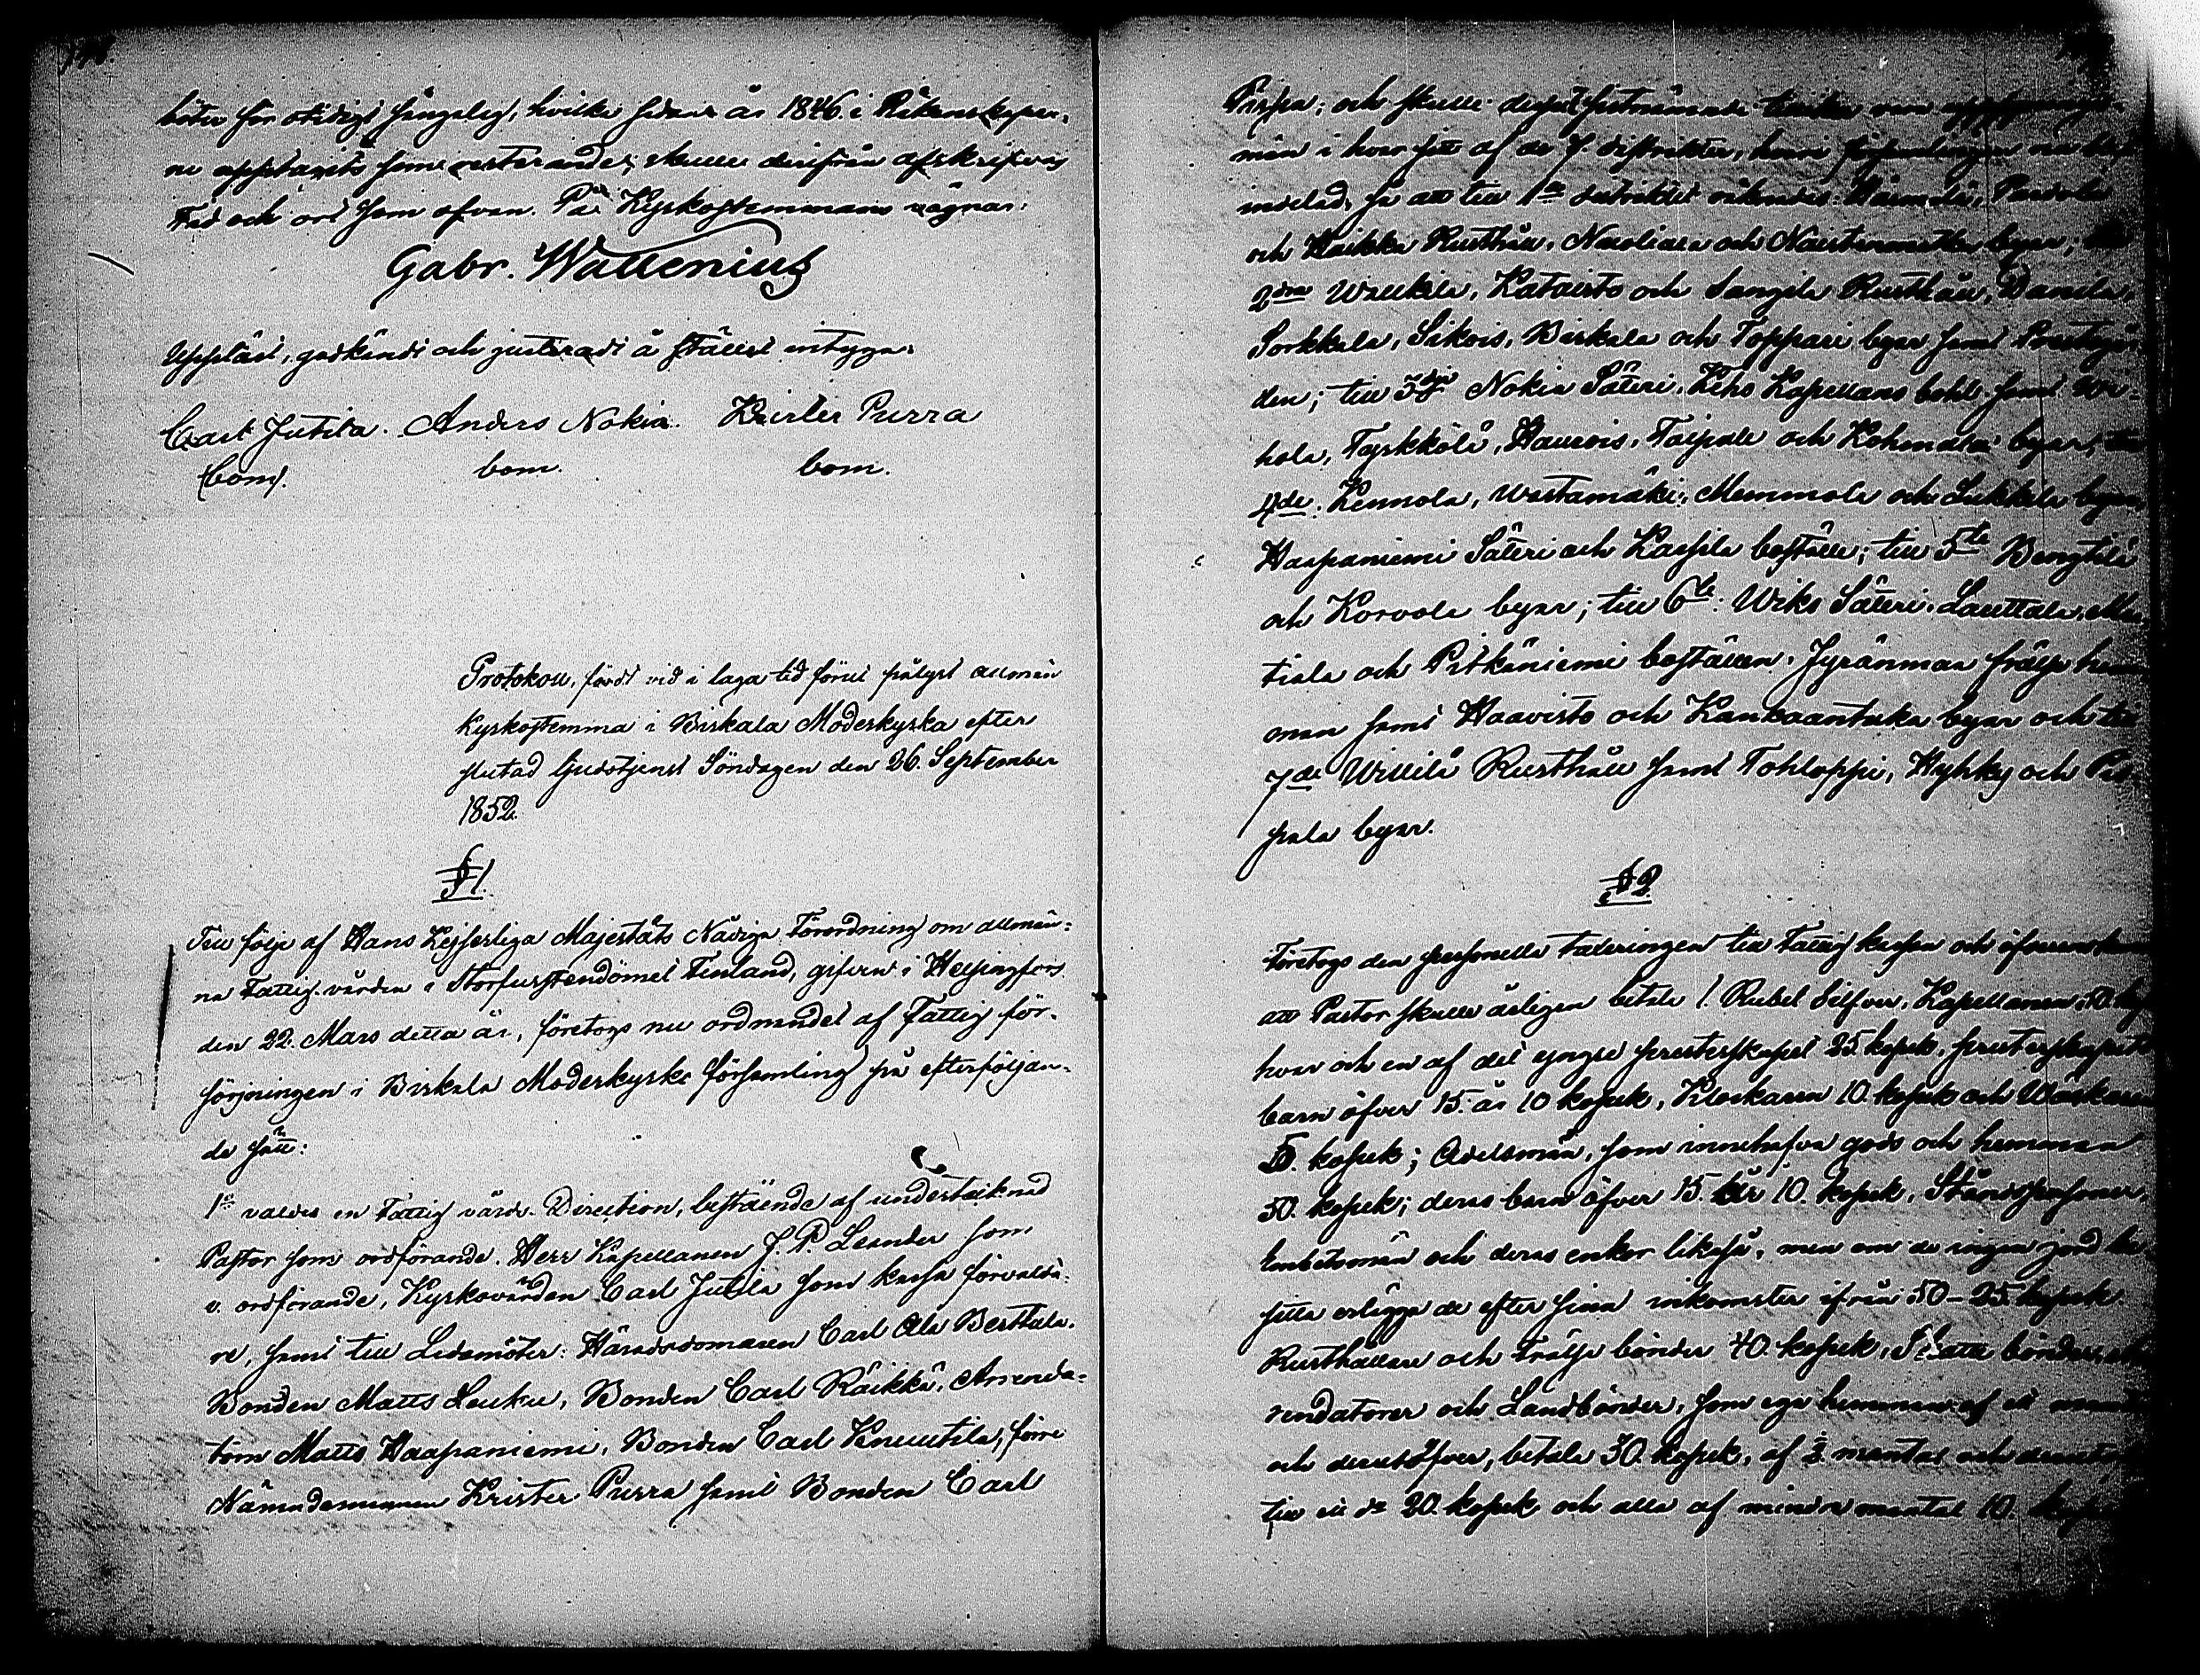 böter för otidigt sängelag, hvilka sedan år 1846 i Räkenskaper-
ne upptagits som resterande, skulle derifrån afskrifvas
Tid och ort som ofvan. På Kyrkostemmans vägnar:
Gabr. Wallenius
Uppläst, godkändt och justeradt å stället intyga:
Carl Jutila. Anders Nokia. Krister Purra
bom. bom. bom.
Protokoll, fördt vid i laga tid förut pålyst allmän
Kyrkostemma i Birkala Moderkyrka efter
slutad Gudstjenst Söndagen den 26. September
1852.
§ 1.
Till följe af Hans Kejserliga Majestäts Nådiga Förordning om allmän-
na Fattigvården i Storfurstendömet Finland, gifven i Helsingfors
den 22. Mars detta år, företogs nu ordnandet af Fattig för-
sörjningen i Birkala Moderkyrko församling på efterföljan-
de sätt:
1o valdes en Fattig vårds Direction, bestående af undertecknad
Pastor som ordförande. Herr Kapellanen J. P. Leander som
v. ordförande, Kyrkovärden Carl Jutila som kassa förvalta-
re, samt till Ledamöter: Häradsdomaren Carl Ala Berttala,
Bonden Matts Leuku, Bonden Carl Räikkä, Arrenda-
torn Matts Haapaniemi, Bonden Carl Knuutila, förre
Nämndemannen Krister Purra samt Bonden Carl
och skulle
män i hvar sitt af de 7 distrikter, hvari församlingen
indelad, så att till 1sta distriktet räknades
och Haikka Rusthåll, Nuoliala och Naistenmatka byar;
2dra Willkila, Kataisto och Sangila Rusthåll, Danila,
Sorkkala, Sikois, Birkala och Toppari byar samt Prestgår-
den; till 3dje Nokia Säteri, Keho Kapellans bohl samt
hola, Tyrkkölä, Haurois, Taipale och Kohmala byar;
4de: Kennola, Wastamäki, Memmola och Lukkala byar,
Haapaniemi Säteri och Kaspila boställe; till 5te Bengtilä
och Korvola byar; till 6te: Wiks Säteri, Lauttala,
tiala och Pitkäniemi boställen, Jyränmaa frälse hem-
man samt Haavisto och Kankaantaka byar och till
7de Willilä Rusthåll samt Tohloppi, Hyhky och Pis-
pala byar.
§ 2.
Företogs den personella taxeringen till Fattig kassan och öfverenskoms
att Pastor skulle årligen betala 1. Rubel Silfver, Kapellanen 50 kop
hvar och en af det yngre presterskapet 25. kopek, presterskapets
barn öfver 15. år 10 kopek, Klockaren 10. kopek och
kopek; Adelsmän, som innehafva gods och hemman
50. kopek; deras barn öfver 15. år 10. kopek, Ståndspersoner,
Embetsmän och deras enkor likaså, men om de ingen jord be-
sitta erlägga de efter sina inkomster ifrån 50-25 kopek.
Rusthållare och Frälse bönder 40. kopek, Skatte bönder,
rendatorer och Landbönder, som ega hemman af ett
och derutöfver, betala 30. kopek, af ½ mantal och derutöfver
till ett do 20. kopek och alla af mindre mantal 10. kopek